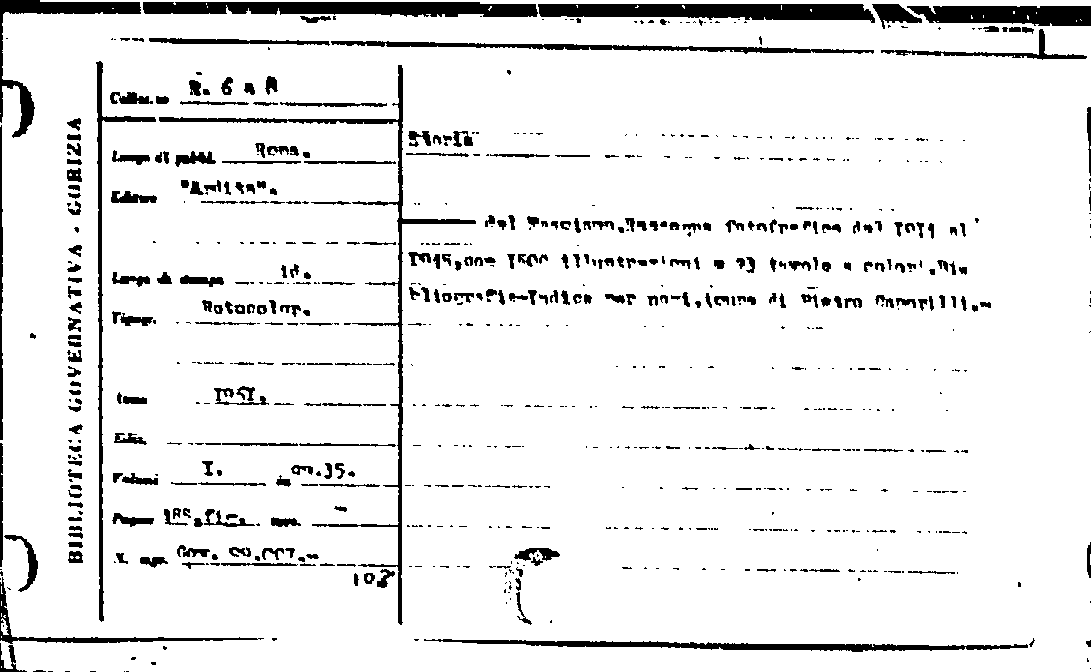 BIBLIOTECA GOVERNATIVA - GORIZIA
Colloc.ne R. 6 a A
Luogo di pubbl. Roma.
Editore "Ardita".
Luogo di stampa id.
Tipogr. Rotocolor.
Anno I95I.
Ediz.
Volumi I. in cm.35.
Pagine fig. tavv. -
N. ingr. Gov.
Storia
del Fascismo.Rassegna fotografica dal I9I4 al
I945,con I500 illustrazioni e 23 tavole a colori.Bi=
bliografia-Indice per nomi,(cura di Pietro Caporilli.-